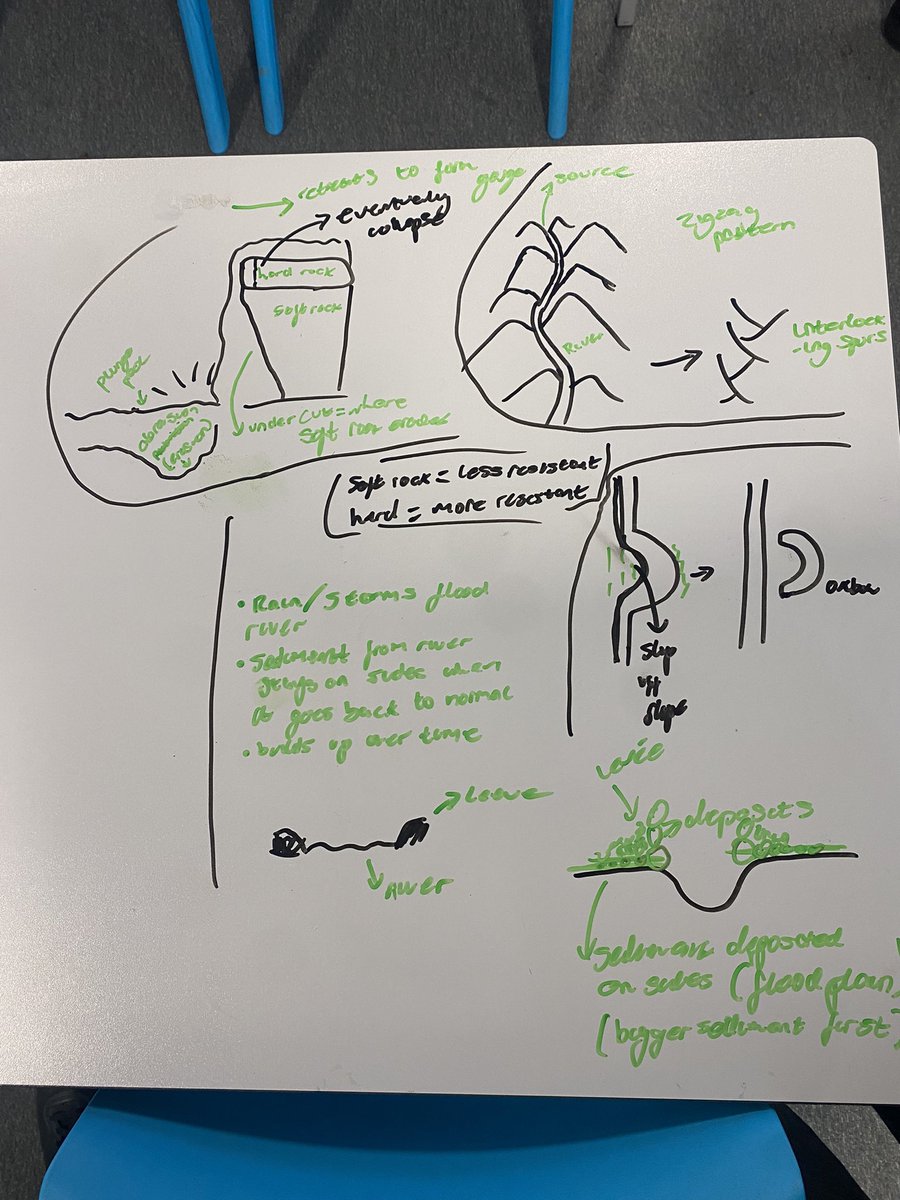 retreats to form gauge
eventually
collapse
hard rock
Soft rock
plunge
pool
abrasion
(erosion)
undercut = where
soft rock erodes
source
zigzag
pattern
River
interlock
-ing spurs
Soft rock = less resistant
hard = more resistant
• Rain/storms flood
river
• Sediment from river
stays on sides when
it goes back to normal
• builds up over time
Leave
River
slip
off
slope
oxbow
deposits
Sediment deposited
on sides (flood plain)
(bigger sediment first)